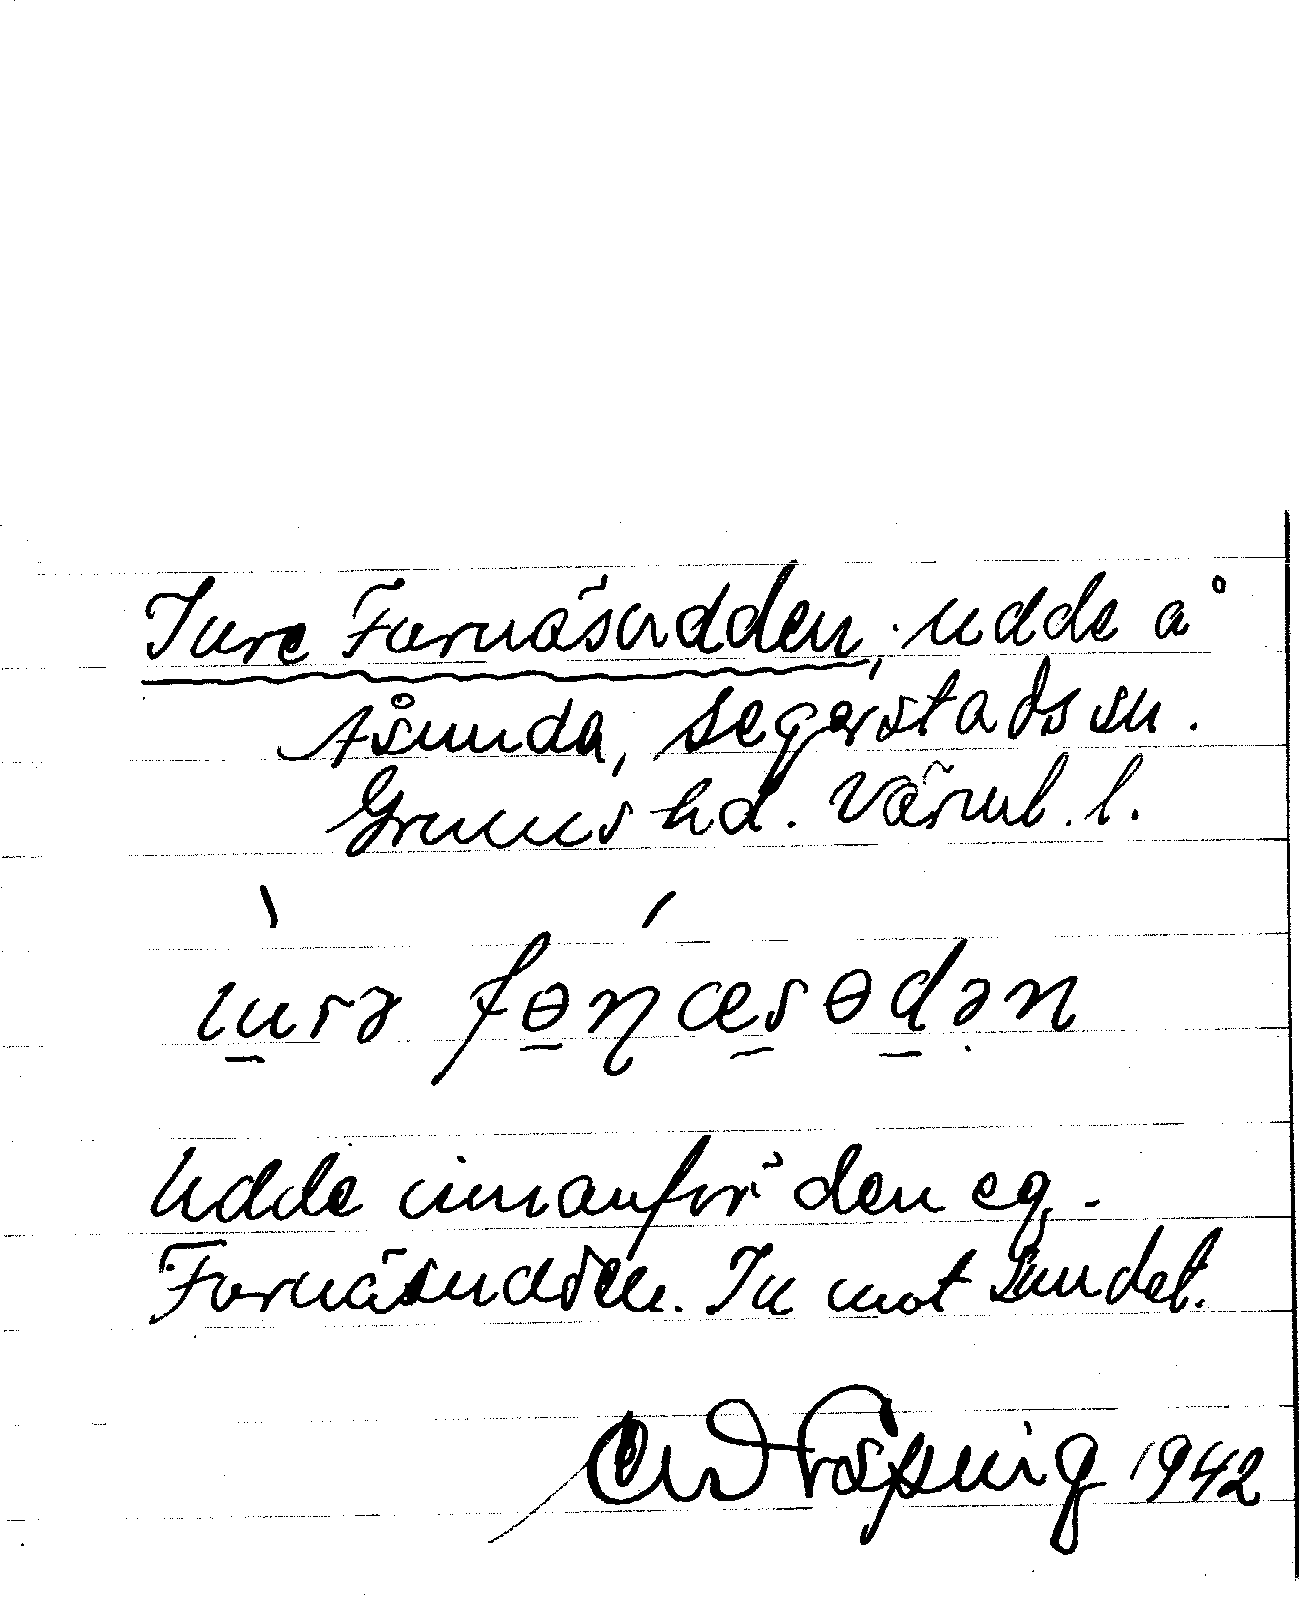 Iure Fornäsudden, udde å
Åsunda, Segerstads sn.
Grums hd. Värml. l.
iu̠rə fɵ̠ɳæ̠sɵd̠ən
Udde innanför den eg.
Fornäsudden. In mot Sundet.
1942